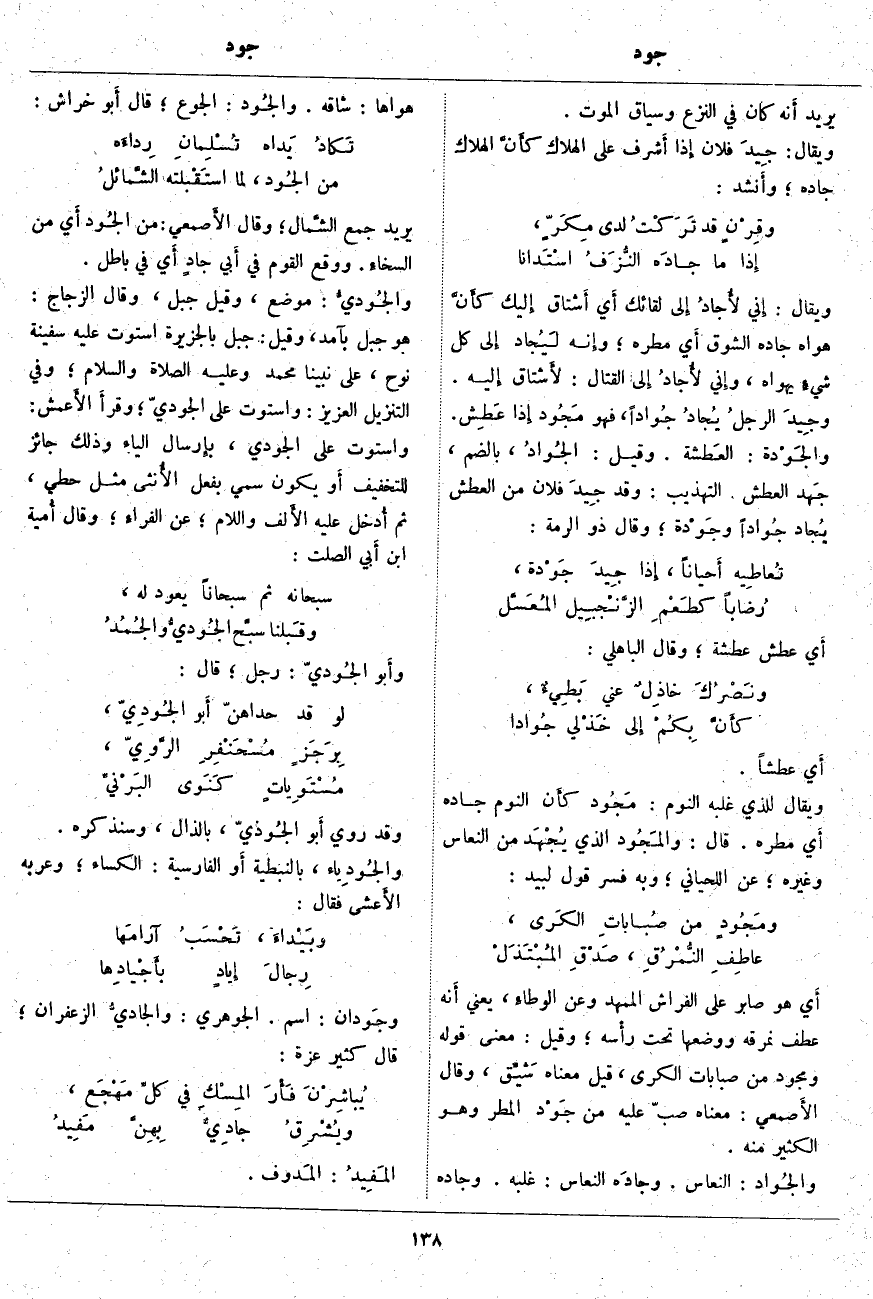 جود
جود
يريد أنه كان في النزع وسياق الموت .
ويقال : جِيدَ فلان إذا أشرف على الهلاك كأنَّ الهلاك
جاده ؛ وأنشد :
وقِرْنٍ قد تَرَكْتُ لدى مِكَرٍّ ،
إذا ما جادَه النُّزَفُ اسْتَدانا
ويقال : إني لأُجادُ إلى لقائك أي أشتاق إليك كأنَّ
هواه جاده الشوق أي مطره ؛ وإنه لَيُجاد إلى كل
شيءٍ يهواه ، وإني لأُجادُ إلى القتال : لأشتاق إليه .
وجِيدَ الرجلُ يُجادُ جُواداً ، فهو مَجُود إذا عَطِش .
والجَوْدة : العَطشة . وقيل : الجُوادُ ، بالضم ،
جَهد العطش . التهذيب : وقد جِيدَ فلان من العطش
يُجاد جُواداً وجَوْدة ؛ وقال ذو الرمة :
تُعاطِيه أحياناً ، إذا جِيدَ جَوْدة ،
رُضاباً كطَعْمِ الزَّنْجِبيل المُعَسَّل
أي عطش عطشة ؛ وقال الباهلي :
ونَصْرُكَ خاذِلٌ عني بَطِيءٌ ،
كأنَّ بِكُمْ إلى خَذْلي جُوادا
أي عطشاً .
ويقال للذي غلبه النوم : مَجُود كأن النوم جاده
أي مطره . قال : والمَجُود الذي يُجْهَد من النعاس
وغيره ؛ عن اللحياني ؛ وبه فسر قول لبيد :
ومَجُودٍ من صُباباتِ الكَرى ،
عاطِفِ النُّمْرُقِ ، صَدْقِ المُبْتَذَلْ
أي هو صابر على الفراش الممهد وعن الوطاء ، يعني أنه
عطف نمرقه ووضعها تحت رأسه ؛ وقيل : معنى قوله
ومجود من صبابات الكرى ، قيل معناه شَيِّق ، وقال
الأصمعي : معناه صبّ عليه من جَوْد المطر وهو
الكثير منه .
والجُواد : النعاس . وجادَه النعاس : غلبه . وجاده
هواها : شاقه . والجُود : الجوع ؛ قال أبو خراش :
تَكادُ يَداه تُسْلِمانِ رِداءَه
من الجُود ، لما استَقْبلته الشَّمائلُ
يريد جمع الشَّمال ؛ وقال الأصمعي : من الجُود أي من
السخاء . ووقع القوم في أبي جادٍ أي في باطل .
والجُوديُّ : موضع ، وقيل جبل ، وقال الزجاج :
هو جبل بآمد ، وقيل : جبل بالجزيرة استوت عليه سفينة
نوح ، على نبينا محمد وعليه الصلاة والسلام ؛ وفي
التنزيل العزيز : واستوت على الجوديّ ؛ وقرأ الأعمش :
واستوت على الجودي ، بإرسال الياء وذلك جائز
للتخفيف أو يكون سمي بفعل الأُنثى مثل حطي ،
ثم أُدخل عليه الألف واللام ؛ عن الفراء ؛ وقال أُمية
ابن أبي الصلت :
سبحانه ثم سبحاناً يعود له ،
وقَبلنا سبَّح الجُوديُّ والجُمُدُ
وأبو الجُوديّ : رجل ؛ قال :
لو قد حداهنّ أبو الجُودِيّ ،
بِرَجَزٍ مُسْحَنْفِرِ الرَّوِيّ ،
مُسْتَوِياتٍ كَنَوى البَرْنيّ
وقد روي أبو الجُوذيّ ، بالذال ، وسنذكره .
والجُودِياء ، بالنبطية أو الفارسية : الكساء ؛ وعربه
الأعشى فقال :
وبَيْداءَ ، تَحْسَبُ آرامَها
رِجالَ إيادٍ بأَجْيادِها
وجَودان : اسم . الجوهري : والجاديُّ الزعفران ؛
قال كثير عزة :
يُباشِرْنَ فَأْرَ المِسْكِ في كلِّ مَهْجَعٍ ،
ويُشْرِقُ جادِيٌّ بِهِنَّ مَفِيدُ
المَفِيدُ : المَدوف .
١٣٨